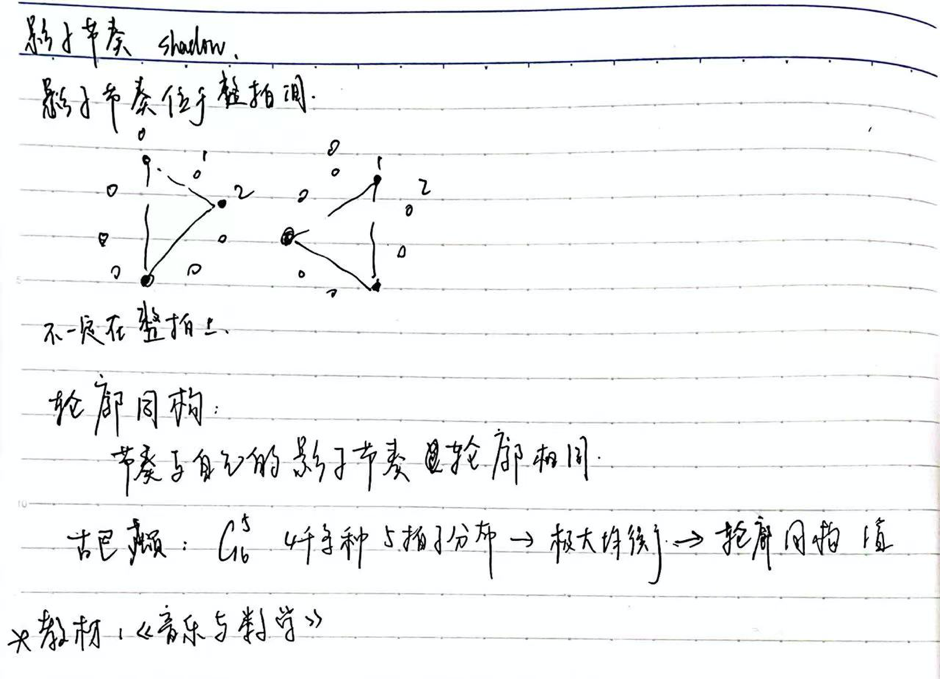 影子节奏 shadow.
影子节奏位于整拍间.
0 1 2
1 2
不一定在整拍上.
轮廓同构:
节奏与自己的影子节奏轮廓相同.
古巴颂: C₁₆⁵ 4千多种 5拍子分布 → 极大均衡 → 轮廓同构 值
*教材:《音乐与数学》